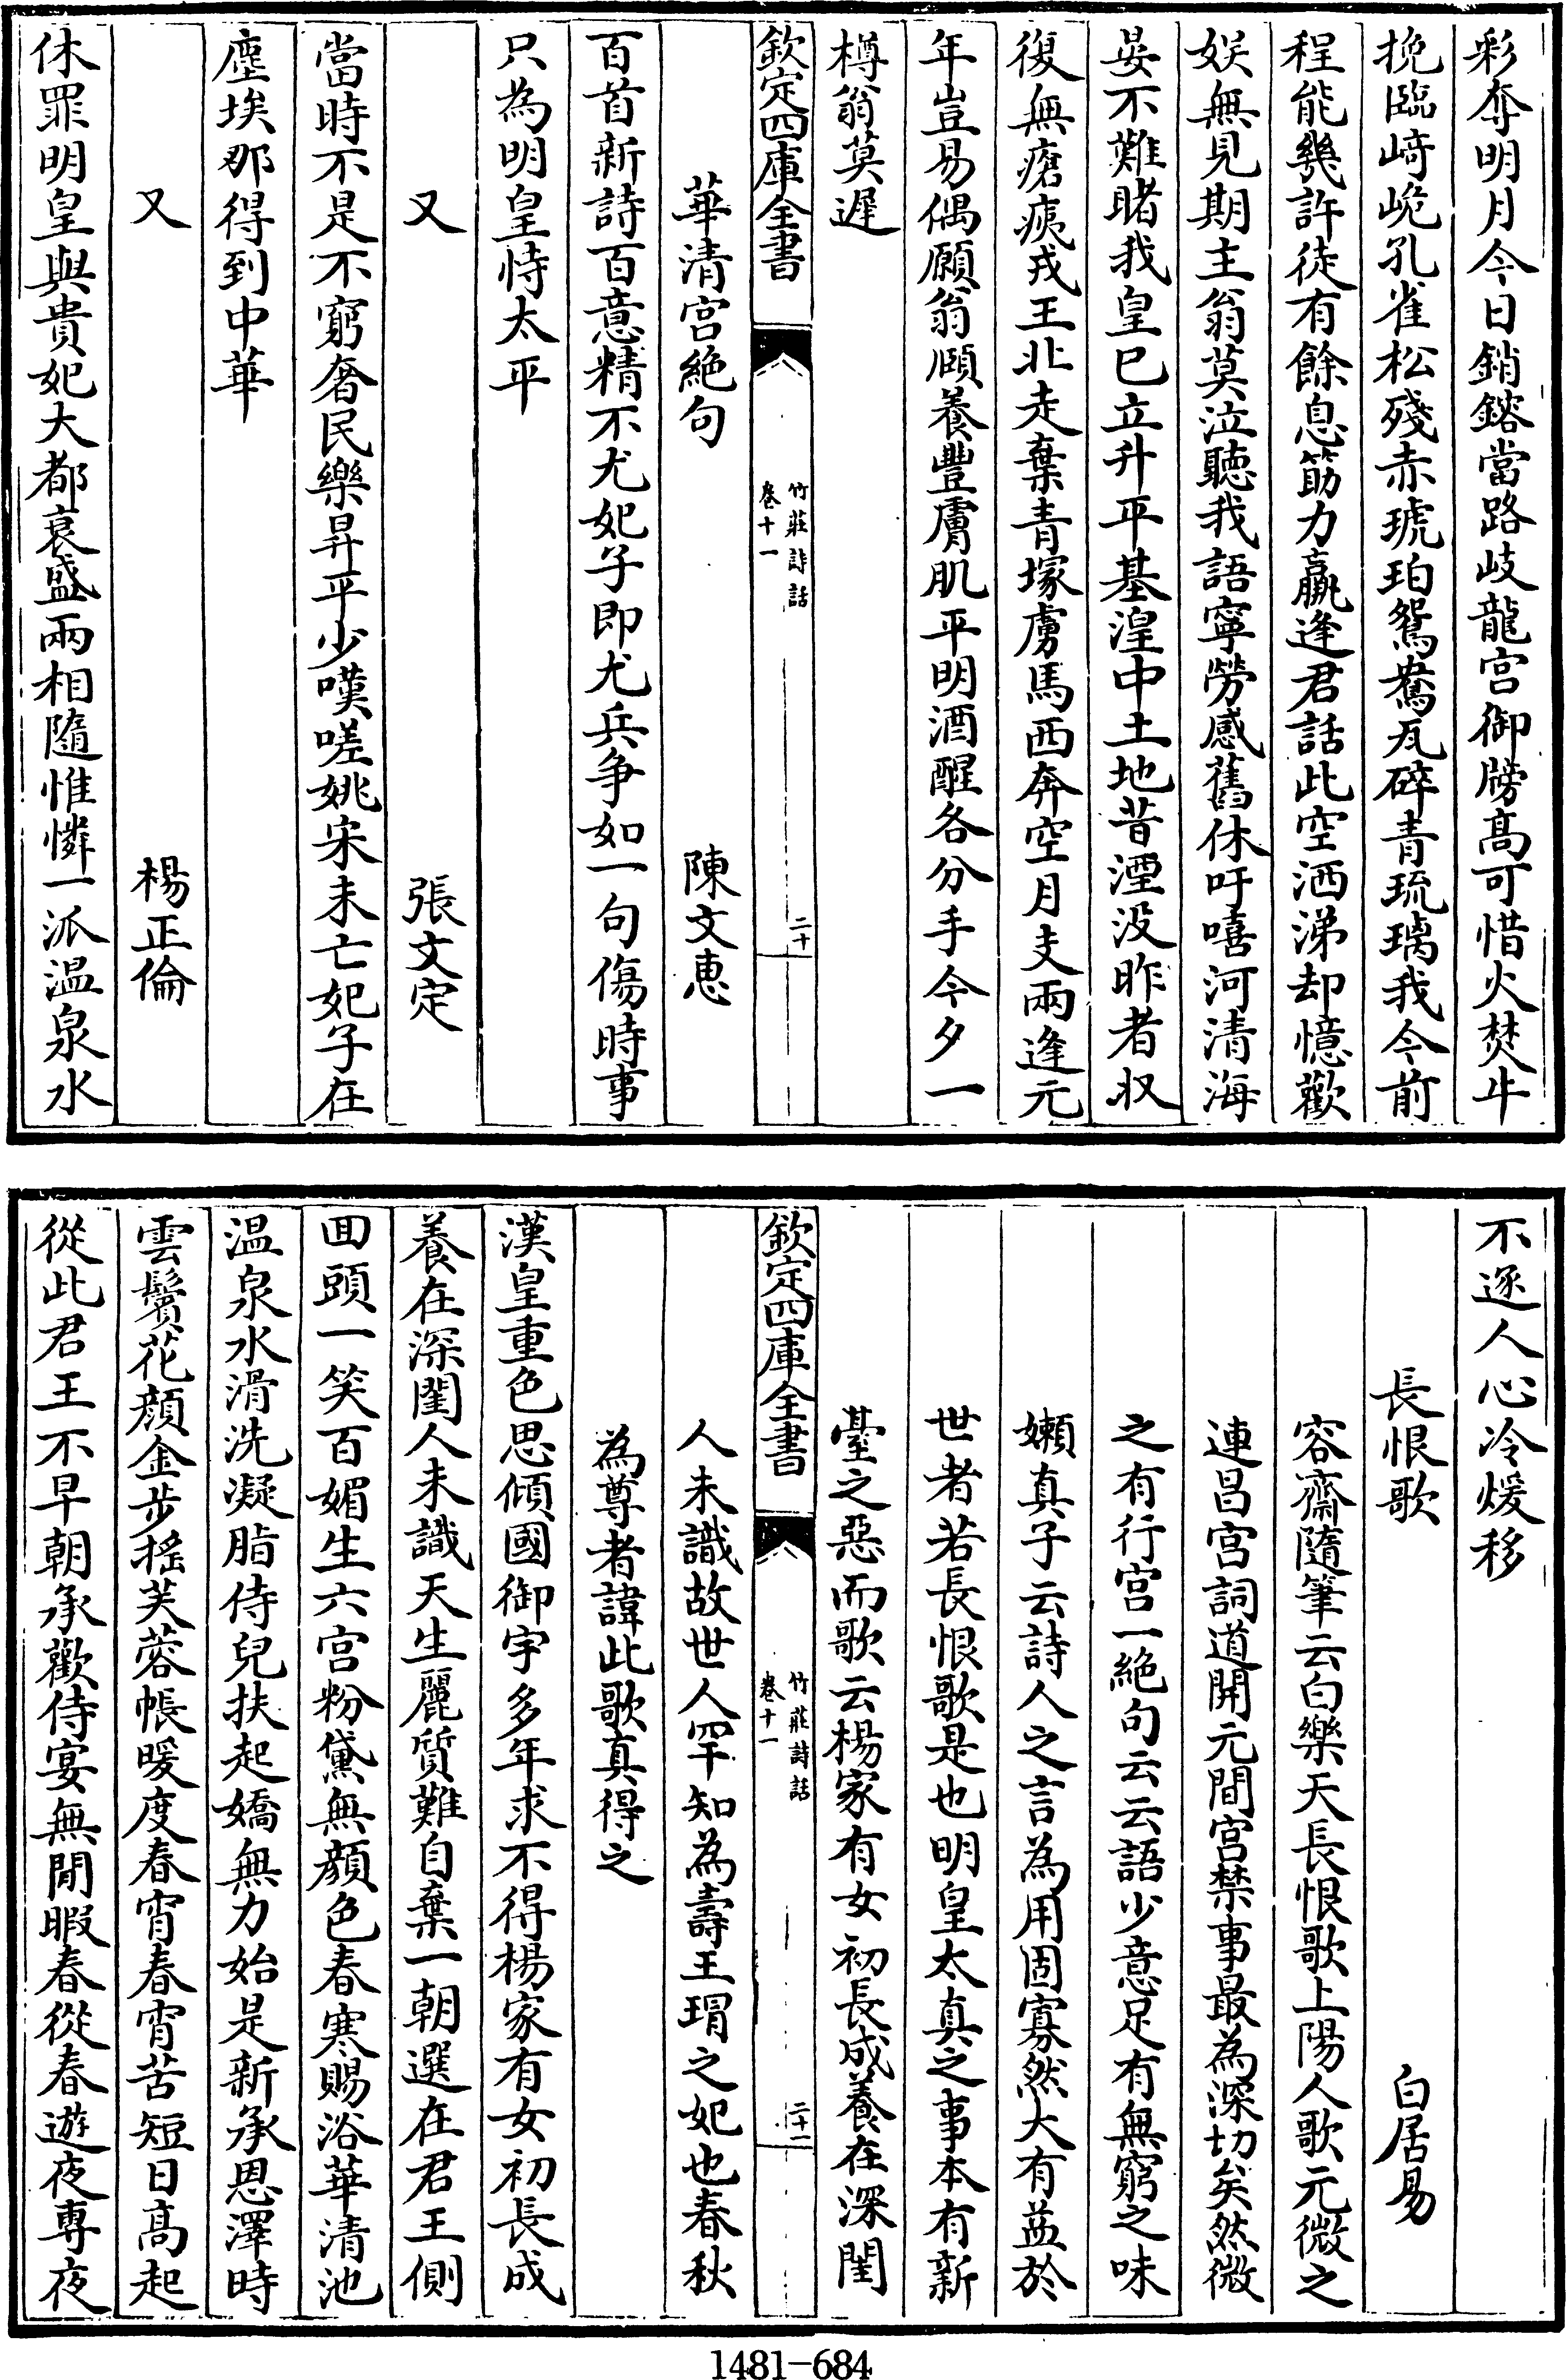 彩奪明月今日銷鎔當路岐龍宮御牓髙可惜火焚牛
挽臨崎𡶴孔雀松殘赤琥珀鴛鴦瓦碎青琉璃我今前
程能幾許徒有餘息筋力羸逢君話此空洒涕却憶歡
娱無見期主翁莫泣聽我語寧勞感舊休吁嘻河清海
晏不難睹我皇巳立升平基湟中土地昔湮没昨者収
復無瘡痍戎王北走棄青塚虜馬西奔空月支兩逢元
年豈易偶願翁頤養豐膚肌平明酒醒各分手今夕一
樽翁莫遲
欽定四庫全書
竹莊詩話
卷十一
二十
華清宫絶句
陳文惠
百首新詩百意精不尤妃子即尤兵争如一句傷時事
只為明皇恃太平
又
張文定
當時不是不窮奢民樂昇平少嘆嗟姚宋未亡妃子在
塵埃那得到中華
又
楊正倫
休罪明皇與貴妃大都衰盛兩相隨惟憐一派温泉水
不逐人心冷煖移
長恨歌
白居易
容齋隨筆云白樂天長恨歌上陽人歌元微之
連昌宫詞道開元間宫禁事最為深切矣然微
之有行宫一絶句云云語少意足有無窮之味
嬾真子云詩人之言為用固寡然大有益於
世者若長恨歌是也明皇太真之事本有新
臺之惡而歌云楊家有女初長成養在深閨
欽定四庫全書
竹莊詩話
卷十一
二十一
人未識故世人罕知為壽王瑁之妃也春秋
為尊者諱此歌真得之
漢皇重色思傾國御宇多年求不得楊家有女初長成
養在深閨人未識天生麗質難自棄一朝選在君王側
囬頭一笑百媚生六宫粉黛無顔色春寒賜浴華清池
温泉水滑洗凝脂侍兒扶起嬌無力始是新承恩澤時
雲鬢花顔金步揺芙蓉帳暖度春宵春宵苦短日髙起
從此君王不早朝承歡侍宴無閒暇春從春遊夜專夜
1481-684